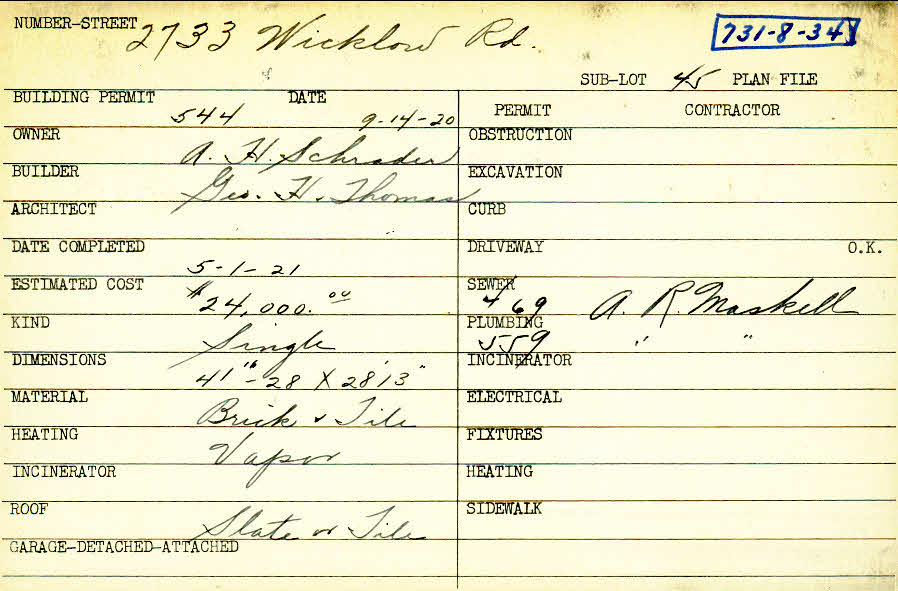 NUMBER-STREET 2733 Wicklow Rd.
731-8-34
SUB-LOT 45 PLAN FILE
BUILDING PERMIT 544 DATE 9-14-20
OWNER A. H. Schrader
BUILDER Geo. H. Thomas
ARCHITECT
DATE COMPLETED 5-1-21
ESTIMATED COST $24,000.00
KIND Single
DIMENSIONS 41"-28 X 28'13"
MATERIAL Brick & Tile
HEATING Vapor
INCINERATOR
ROOF Slate or Tile
GARAGE-DETACHED-ATTACHED
PERMIT CONTRACTOR
OBSTRUCTION
EXCAVATION
CURB
DRIVEWAY O.K.
SEWER 469 A. R. Maskell
PLUMBING 559 " "
INCINERATOR
ELECTRICAL
FIXTURES
HEATING
SIDEWALK